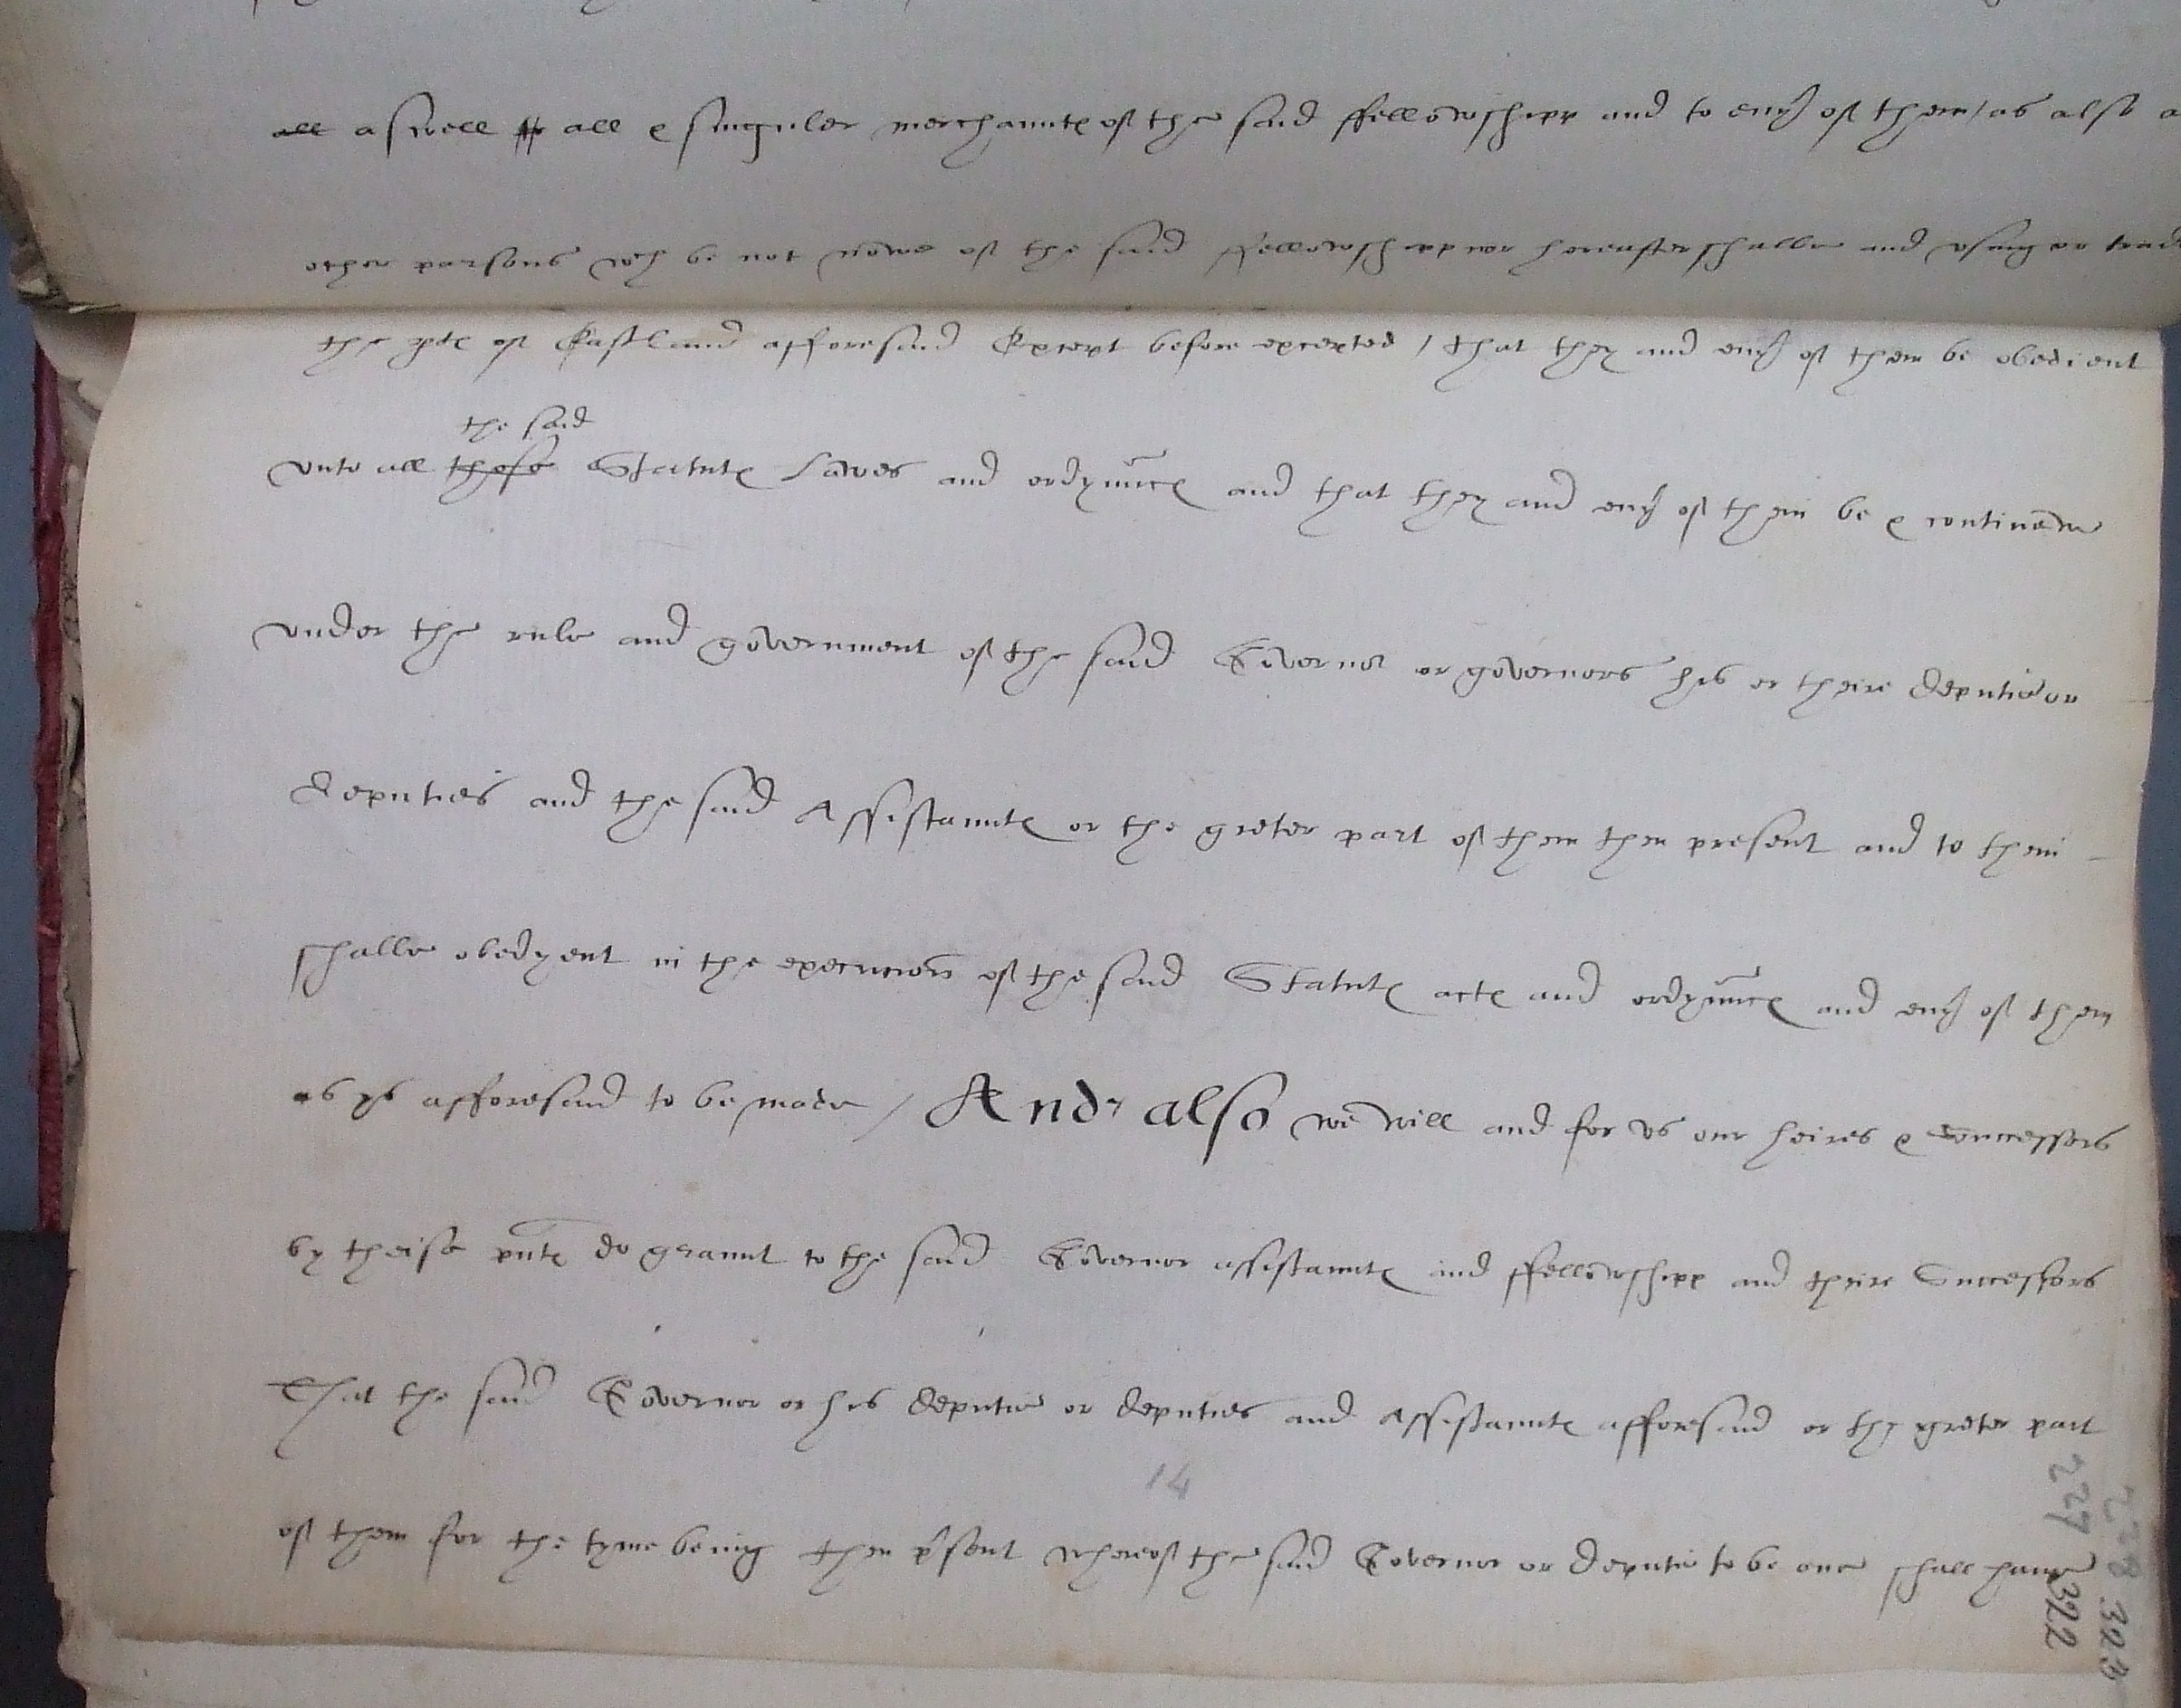 all aswell to all & singuler merchaunte of the said ffellowshipp and to eu'y of them / as also a
other parsons wch be not nowe of the said ffellowshipp nor hereafter shalbe and vsing or trad
the pte of Eastland afforesaid Except before excepted / that they and eu'y of them be obedient
the said
vnto all those Statute Lawes and ordynnce and that they and eu'y of them be & continewe
vnder the rule and government of the said Governor or governors his or theire deputie or
deputies and the said Assistaunte or the greter part of them then present and to them
shalbe obedyent in the execucion of the said Statute acte and ordynnce and eu'y of them
as ys afforesaid to be made / And also we will and for vs our heires & successors
by theise pnte do graunt to the said Governor assistaunte and ffellowshipp and theire Successors
That the said Governor or his deputie or deputies and Assistaunte afforesaid or the greter part
14
of them for the tyme being then p'sent whereof the said Governor or deputie to be one shall haue
227 322
228 323